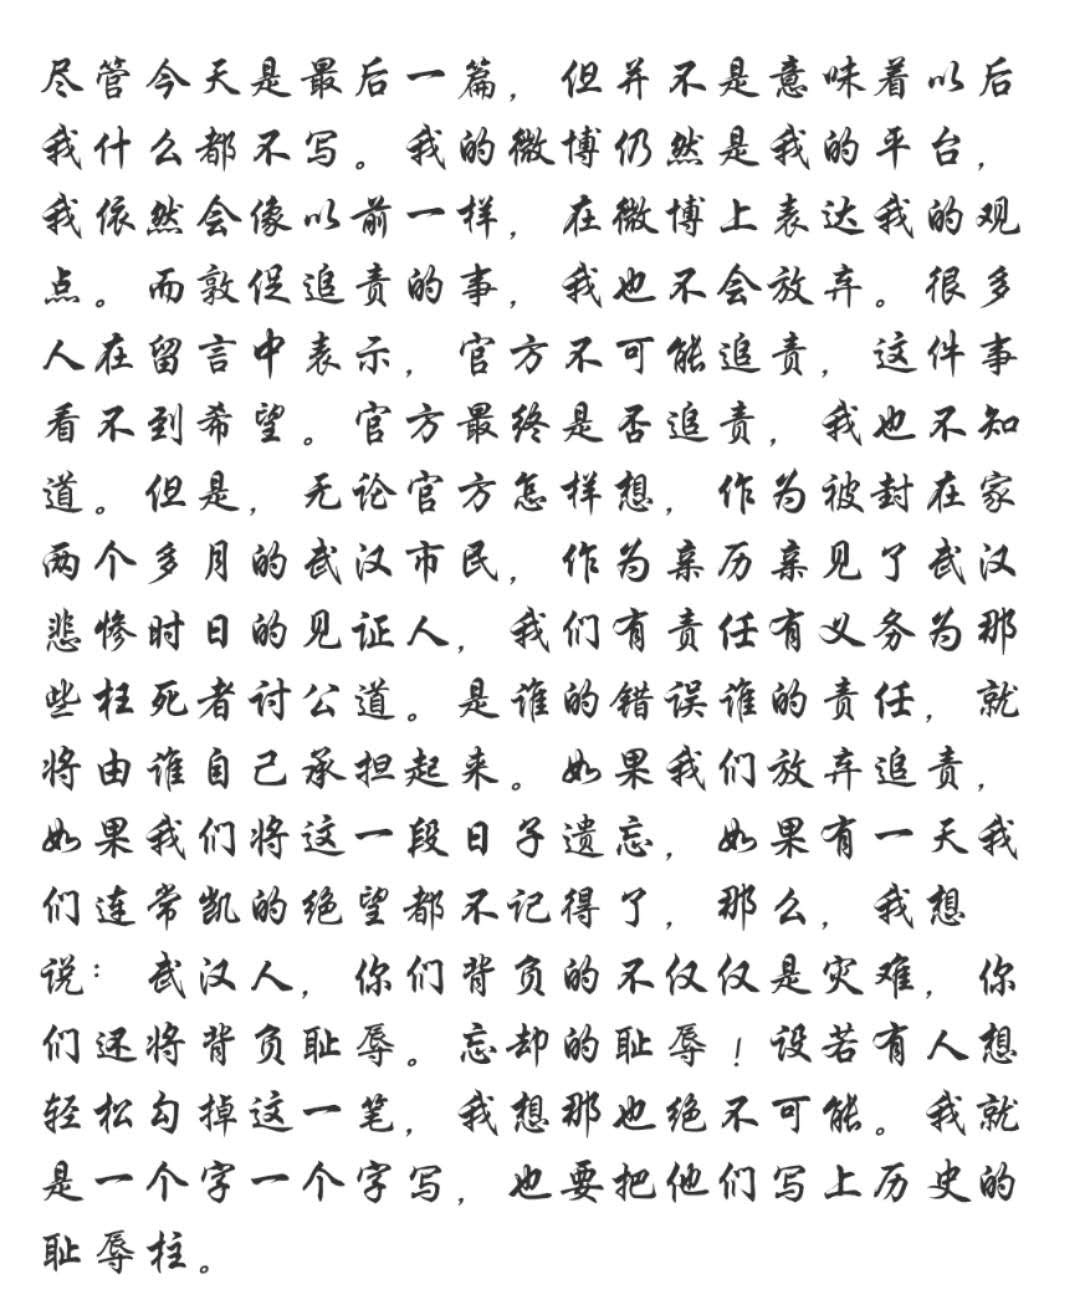 尽管今天是最后一篇，但并不是意味着以后
我什么都不写。我的微博仍然是我的平台，
我依然会像以前一样，在微博上表达我的观
点。而敦促追责的事，我也不会放弃。很多
人在留言中表示，官方不可能追责，这件事
看不到希望。官方最终是否追责，我也不知
道。但是，无论官方怎样想，作为被封在家
两个多月的武汉市民，作为亲历亲见了武汉
悲惨时日的见证人，我们有责任有义务为那
些枉死者讨公道。是谁的错误谁的责任，就
将由谁自己承担起来。如果我们放弃追责，
如果我们将这一段日子遗忘，如果有一天我
们连常凯的绝望都不记得了，那么，我想
说：武汉人，你们背负的不仅仅是灾难，你
们还将背负耻辱。忘却的耻辱！设若有人想
轻松勾掉这一笔，我想那也绝不可能。我就
是一个字一个字写，也要把他们写上历史的
耻辱柱。